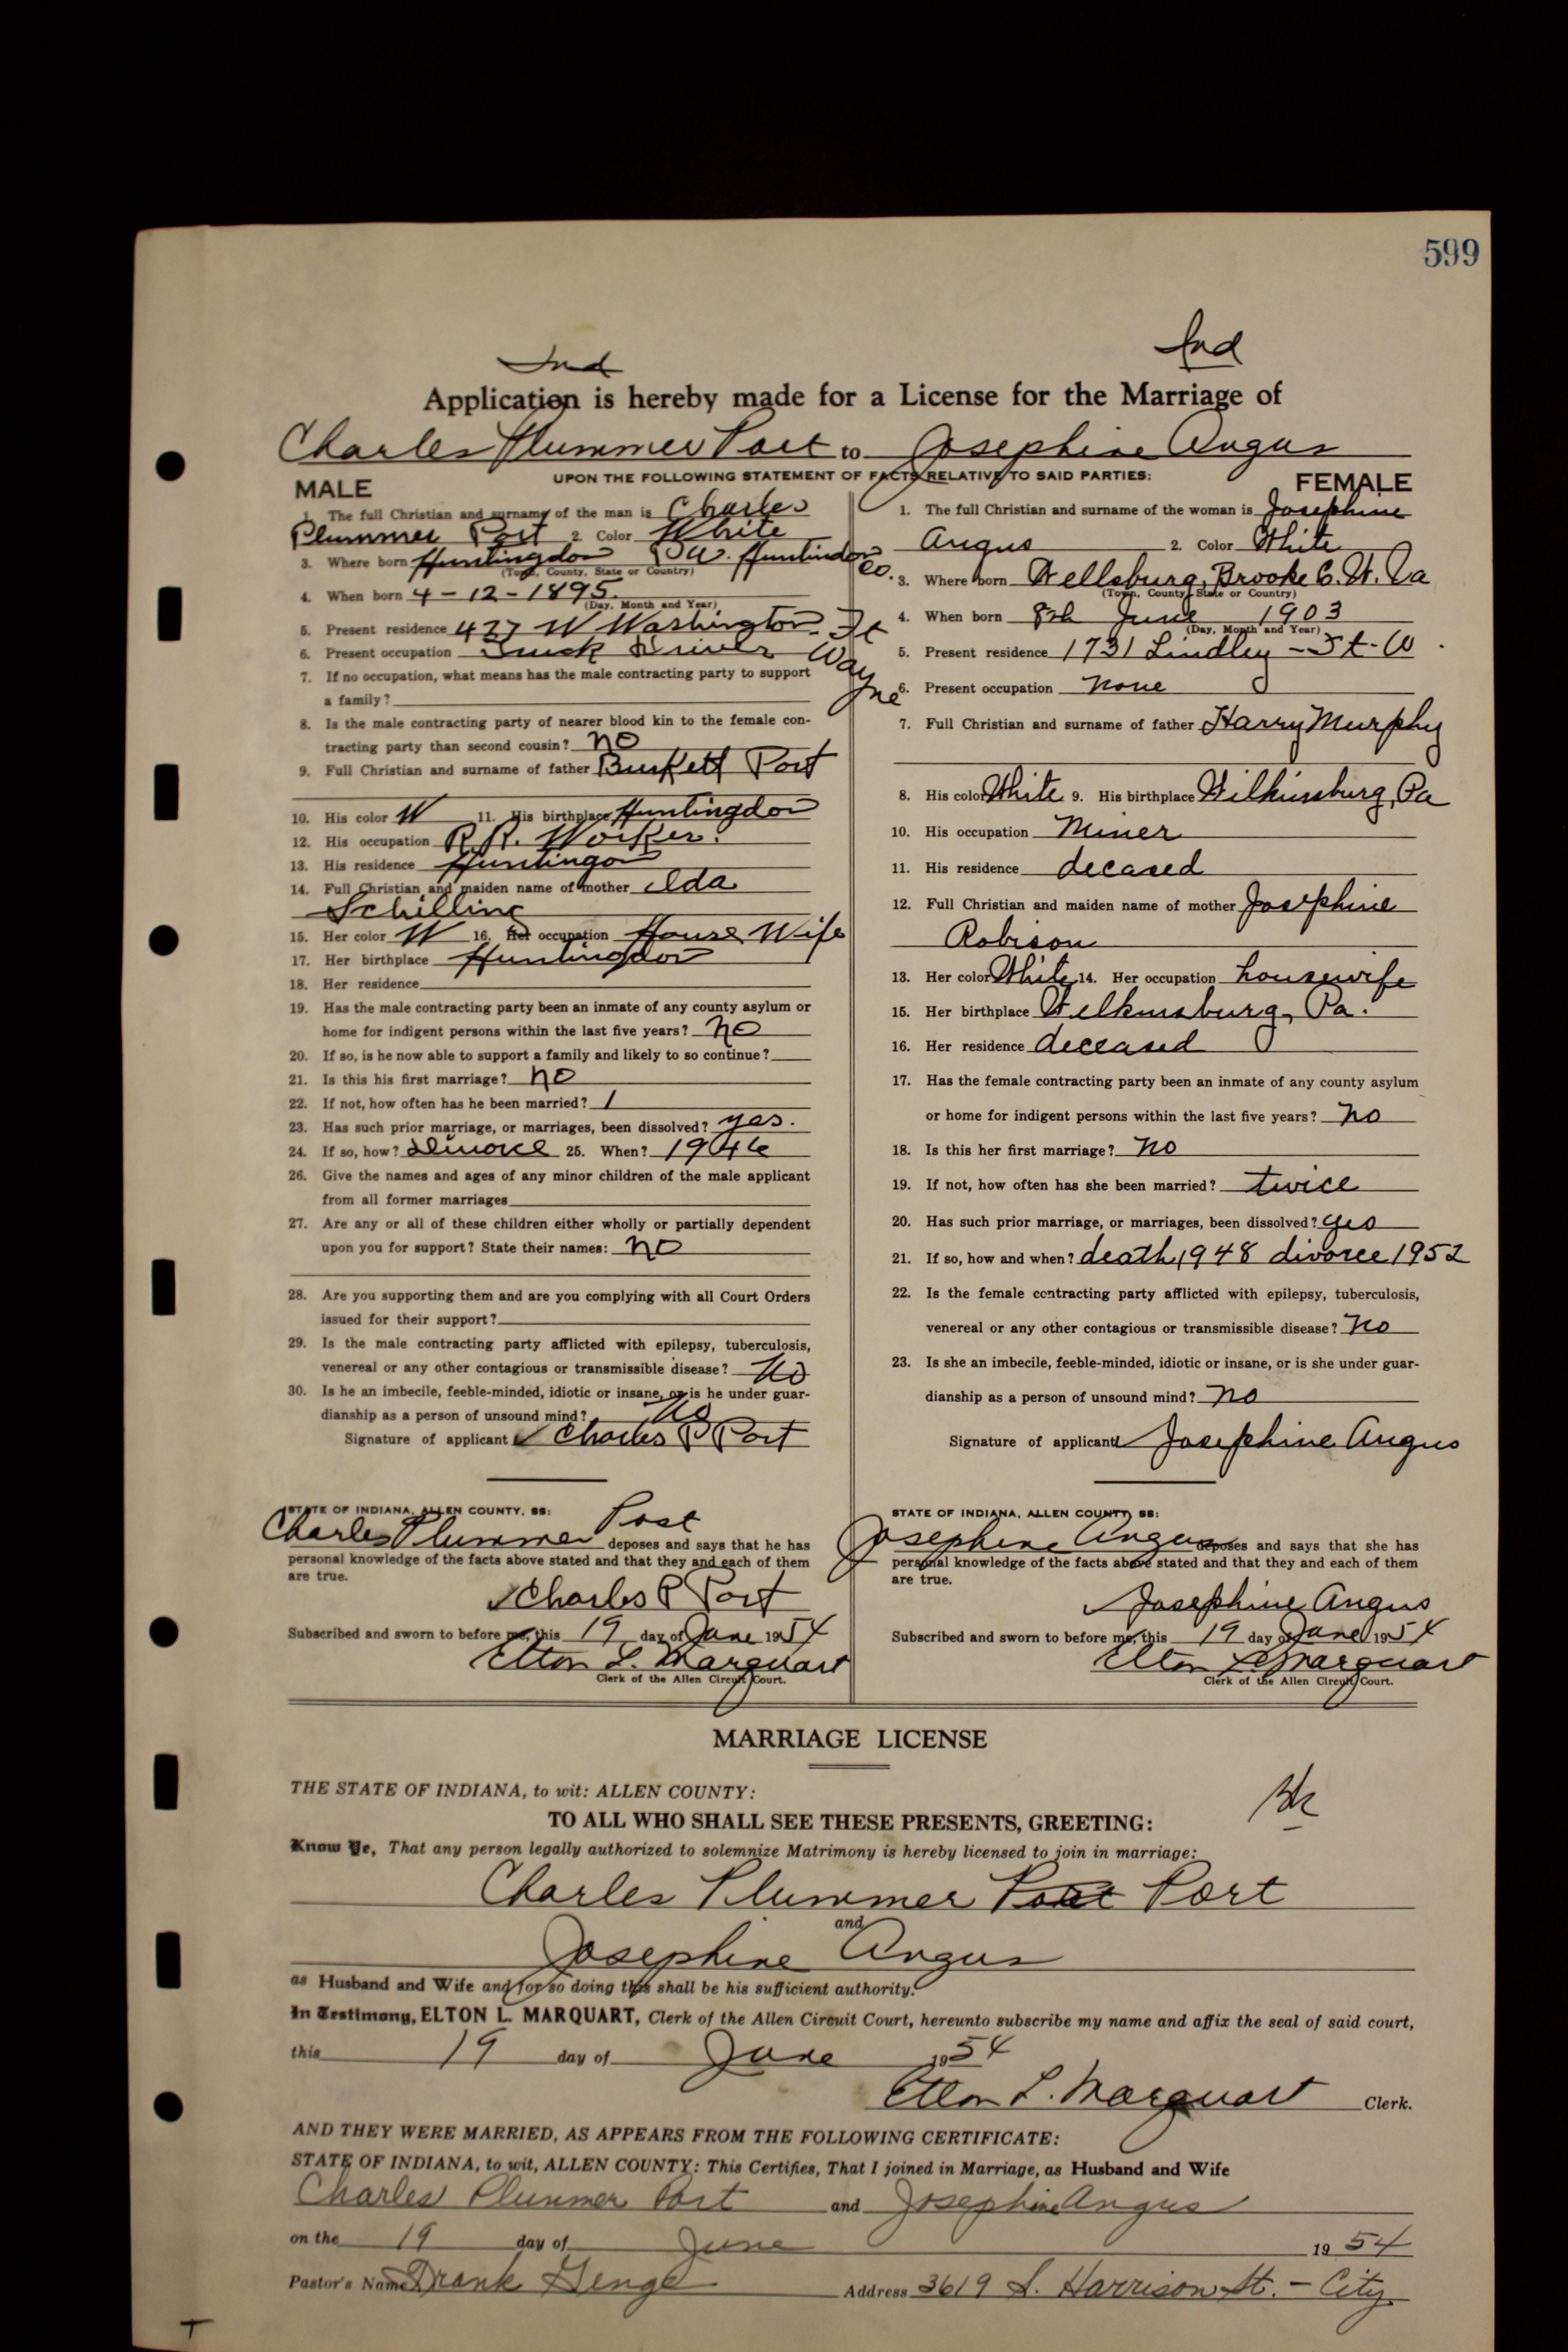 599
Ind Ind
Application is hereby made for a License for the Marriage of
Charles Plummer Port to Josephine Angus
UPON THE FOLLOWING STATEMENT OF FACTS RELATIVE TO SAID PARTIES:
MALE
1. The full Christian and surname of the man is Charles
Plummer Port 2. Color White
3. Where born Huntingdon Pa. Huntindon Co.
(Town, County, State or Country)
4. When born 4-12-1895.
(Day, Month and Year)
5. Present residence 427 W Washington Ft Wayne
6. Present occupation Truck Driver
7. If no occupation, what means has the male contracting party to support
a family?
8. Is the male contracting party of nearer blood kin to the female con-
tracting party than second cousin? no
9. Full Christian and surname of father Burkett Port
10. His color W 11. His birthplace Huntingdon
12. His occupation R.R. Worker.
13. His residence Huntingon
14. Full Christian and maiden name of mother Ida
Schilling
15. Her color W 16. Her occupation House Wife
17. Her birthplace Huntingdon
18. Her residence
19. Has the male contracting party been an inmate of any county asylum or
home for indigent persons within the last five years? no
20. If so, is he now able to support a family and likely to so continue?
21. Is this his first marriage? no
22. If not, how often has he been married? 1
23. Has such prior marriage, or marriages, been dissolved? yes.
24. If so, how? Divorce 25. When? 1946
26. Give the names and ages of any minor children of the male applicant
from all former marriages
27. Are any or all of these children either wholly or partially dependent
upon you for support? State their names: no
28. Are you supporting them and are you complying with all Court Orders
issued for their support?
29. Is the male contracting party afflicted with epilepsy, tuberculosis,
venereal or any other contagious or transmissible disease? No
30. Is he an imbecile, feeble-minded, idiotic or insane, or is he under guar-
dianship as a person of unsound mind? No
Signature of applicant Charles P Port
STATE OF INDIANA, ALLEN COUNTY, SS:
Charles Plummer Port deposes and says that he has
personal knowledge of the facts above stated and that they and each of them
are true.
Charles P Port
Subscribed and sworn to before me, this 19 day of June 1954
Elton L. Marquart
Clerk of the Allen Circuit Court.
FEMALE
1. The full Christian and surname of the woman is Josephine
Angus 2. Color White
3. Where born Wellsburg, Brooke C. W. Va
(Town, County, State or Country)
4. When born 8th June 1903
(Day, Month and Year)
5. Present residence 1731 Lindley - St - W
6. Present occupation none
7. Full Christian and surname of father Harry Murphy
8. His color White 9. His birthplace Wilkinsburg, Pa
10. His occupation Miner
11. His residence decased
12. Full Christian and maiden name of mother Josephine
Robison
13. Her color White 14. Her occupation housewife
15. Her birthplace Wilkinsburg, Pa.
16. Her residence deceased
17. Has the female contracting party been an inmate of any county asylum
or home for indigent persons within the last five years? no
18. Is this her first marriage? no
19. If not, how often has she been married? twice
20. Has such prior marriage, or marriages, been dissolved? yes
21. If so, how and when? death, 1948 divorce 1952
22. Is the female contracting party afflicted with epilepsy, tuberculosis,
venereal or any other contagious or transmissible disease? no
23. Is she an imbecile, feeble-minded, idiotic or insane, or is she under guar-
dianship as a person of unsound mind? no
Signature of applicant Josephine Angus
STATE OF INDIANA, ALLEN COUNTY, SS:
Josephine Angus deposes and says that she has
personal knowledge of the facts above stated and that they and each of them
are true.
Josephine Angus
Subscribed and sworn to before me, this 19 day of June 1954
Elton L. Marquart
Clerk of the Allen Circuit Court.
MARRIAGE LICENSE
THE STATE OF INDIANA, to wit: ALLEN COUNTY:
TO ALL WHO SHALL SEE THESE PRESENTS, GREETING:
Know Ye, That any person legally authorized to solemnize Matrimony is hereby licensed to join in marriage:
Charles Plummer Port
and
Josephine Angus
as Husband and Wife and for so doing this shall be his sufficient authority.
In Testimony, ELTON L. MARQUART, Clerk of the Allen Circuit Court, hereunto subscribe my name and affix the seal of said court,
this 19 day of June 1954
Elton L. Marquart Clerk.
AND THEY WERE MARRIED, AS APPEARS FROM THE FOLLOWING CERTIFICATE:
STATE OF INDIANA, to wit, ALLEN COUNTY: This Certifies, That I joined in Marriage, as Husband and Wife
Charles Plummer Port and Josephine Angus
on the 19 day of June 1954
Pastor's Name Frank Gengl Address 3619 S. Harrison St. - City